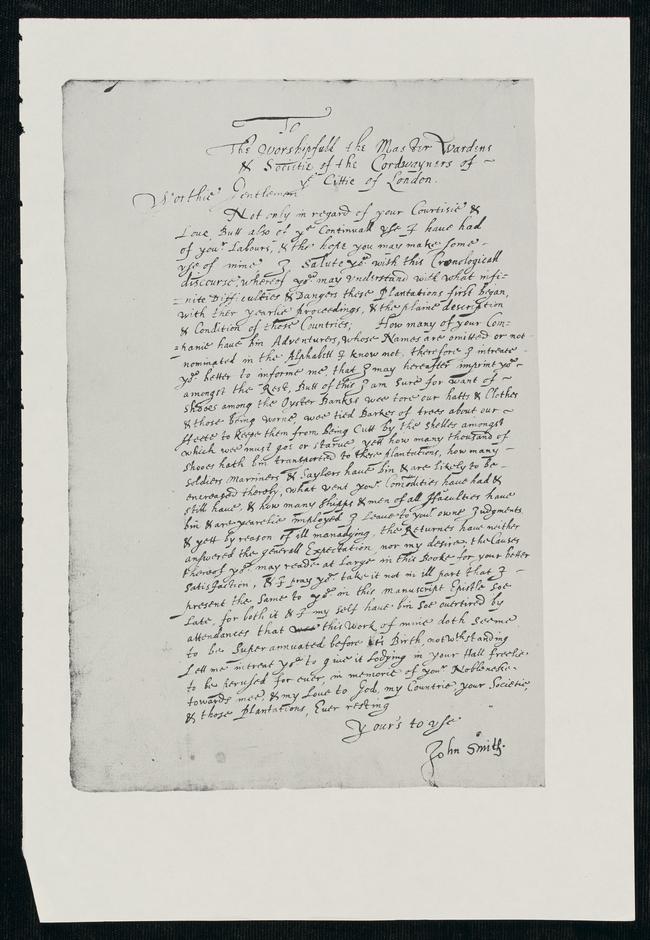 To
The Worshipfull the Master Wardens
& Societie of the Cordwayners of
yᵉ Cittie of London.
Worthie Gentlemen
Not only in regard of your Courtisie &
Love, Butt also of yᵉ Continuall vse I have had
of yoᵘʳ Labours, & the hope you may make some
vse of mine I salute yoᵘ with this Cronologicall
discourse, whereof yoᵘ may vnderstand with what infi=
=nite Difficulties & Dangers these Plantations first began,
with ther yearlie proceedings, & the plaine description
& Condition of these Countries; How many of your Com=
=panie have bin Adventurers, whose Names are omitted or not
nominated in the Alphabett I know not, therefore I intreate
yoᵘ better to informe me that I may hereafter imprint yoᵘ
amongst the Rest, Butt of this I am sure for want of
shooes among the Oyster Bankes wee tore our hatts & Clothes
& those being worne, wee tied Barkes of trees about our
Feete to keepe them from being Cutt by the shelles amongst
which wee must goe or starve, yett how many thousand of
shooes hath bin transported to these plantations, how many
soldiers Marriners & Saylers have bin & are likely to be
encreased thereby, what vent yoᵘʳ Comodities have had &
still have, & how many shipps & men of all Faculties have
bin & are yearelie imployed I leave to yoᵘʳ owne Judgments,
& yett by reason of ill managing, the Returnes have neither
answered the generall Expectation, nor my desire, the Causes
thereof yoᵘ may reade at Large in this Booke for your better
satisfaction, & I pray yoᵘ take it not in ill part that I
present the same to yoᵘ in this manuscript Epistle soe
Late, for both it & I my self have bin soe overtired by
attendances that this Work of mine doth seeme
to be Superannuated before its Birth notwᵗʰstanding
Lett me intreat yoᵘ to give it Lodging in your Hall freelie
to be perused for ever, in memorie of yoᵘʳ Noblenesse
towards mee, & my Love to God, my Countrie your Societie,
& those Plantations, Ever resting
Your's to vse
John Smith.